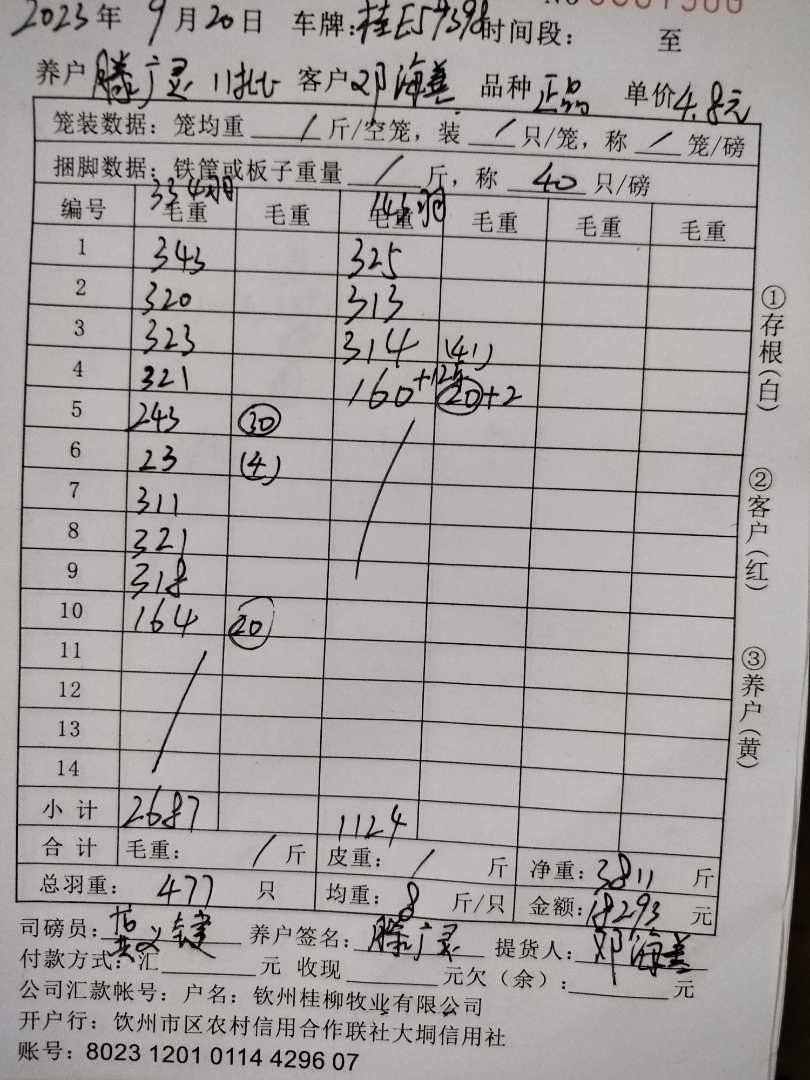 2023年9月20日 车牌:桂E59398时间段: 至
养户滕广灵 11批 客户邓海善 品种正品 单价4.8元
笼装数据：笼均重 / 斤/空笼，装 / 只/笼，称 / 笼/磅
捆脚数据：铁筐或板子重量 / 斤，称 40 只/磅
334羽 143羽
编号 毛重 毛重 毛重 毛重 毛重 毛重
1 343 325
2 320 313
3 323 314 (41)
4 321 160 20+2
5 243 30
6 23 (4)
7 311
8 321
9 318
10 164 20
11
12
13
14
小计 2687 1124
合计 毛重： / 斤 皮重： / 斤 净重：3811 斤
总羽重： 477 只 均重： 8 斤/只 金额：18293 元
司磅员： 养户签名：滕广灵 提货人：邓海善
付款方式：汇 元 收现 元欠（余）： 元
公司汇款帐号：户名：钦州桂柳牧业有限公司
开户行：饮州市区农村信用合作联社大垌信用社
账号：8023 1201 0114 4296 07
①存根(白)
②客户(红)
③养户(黄)